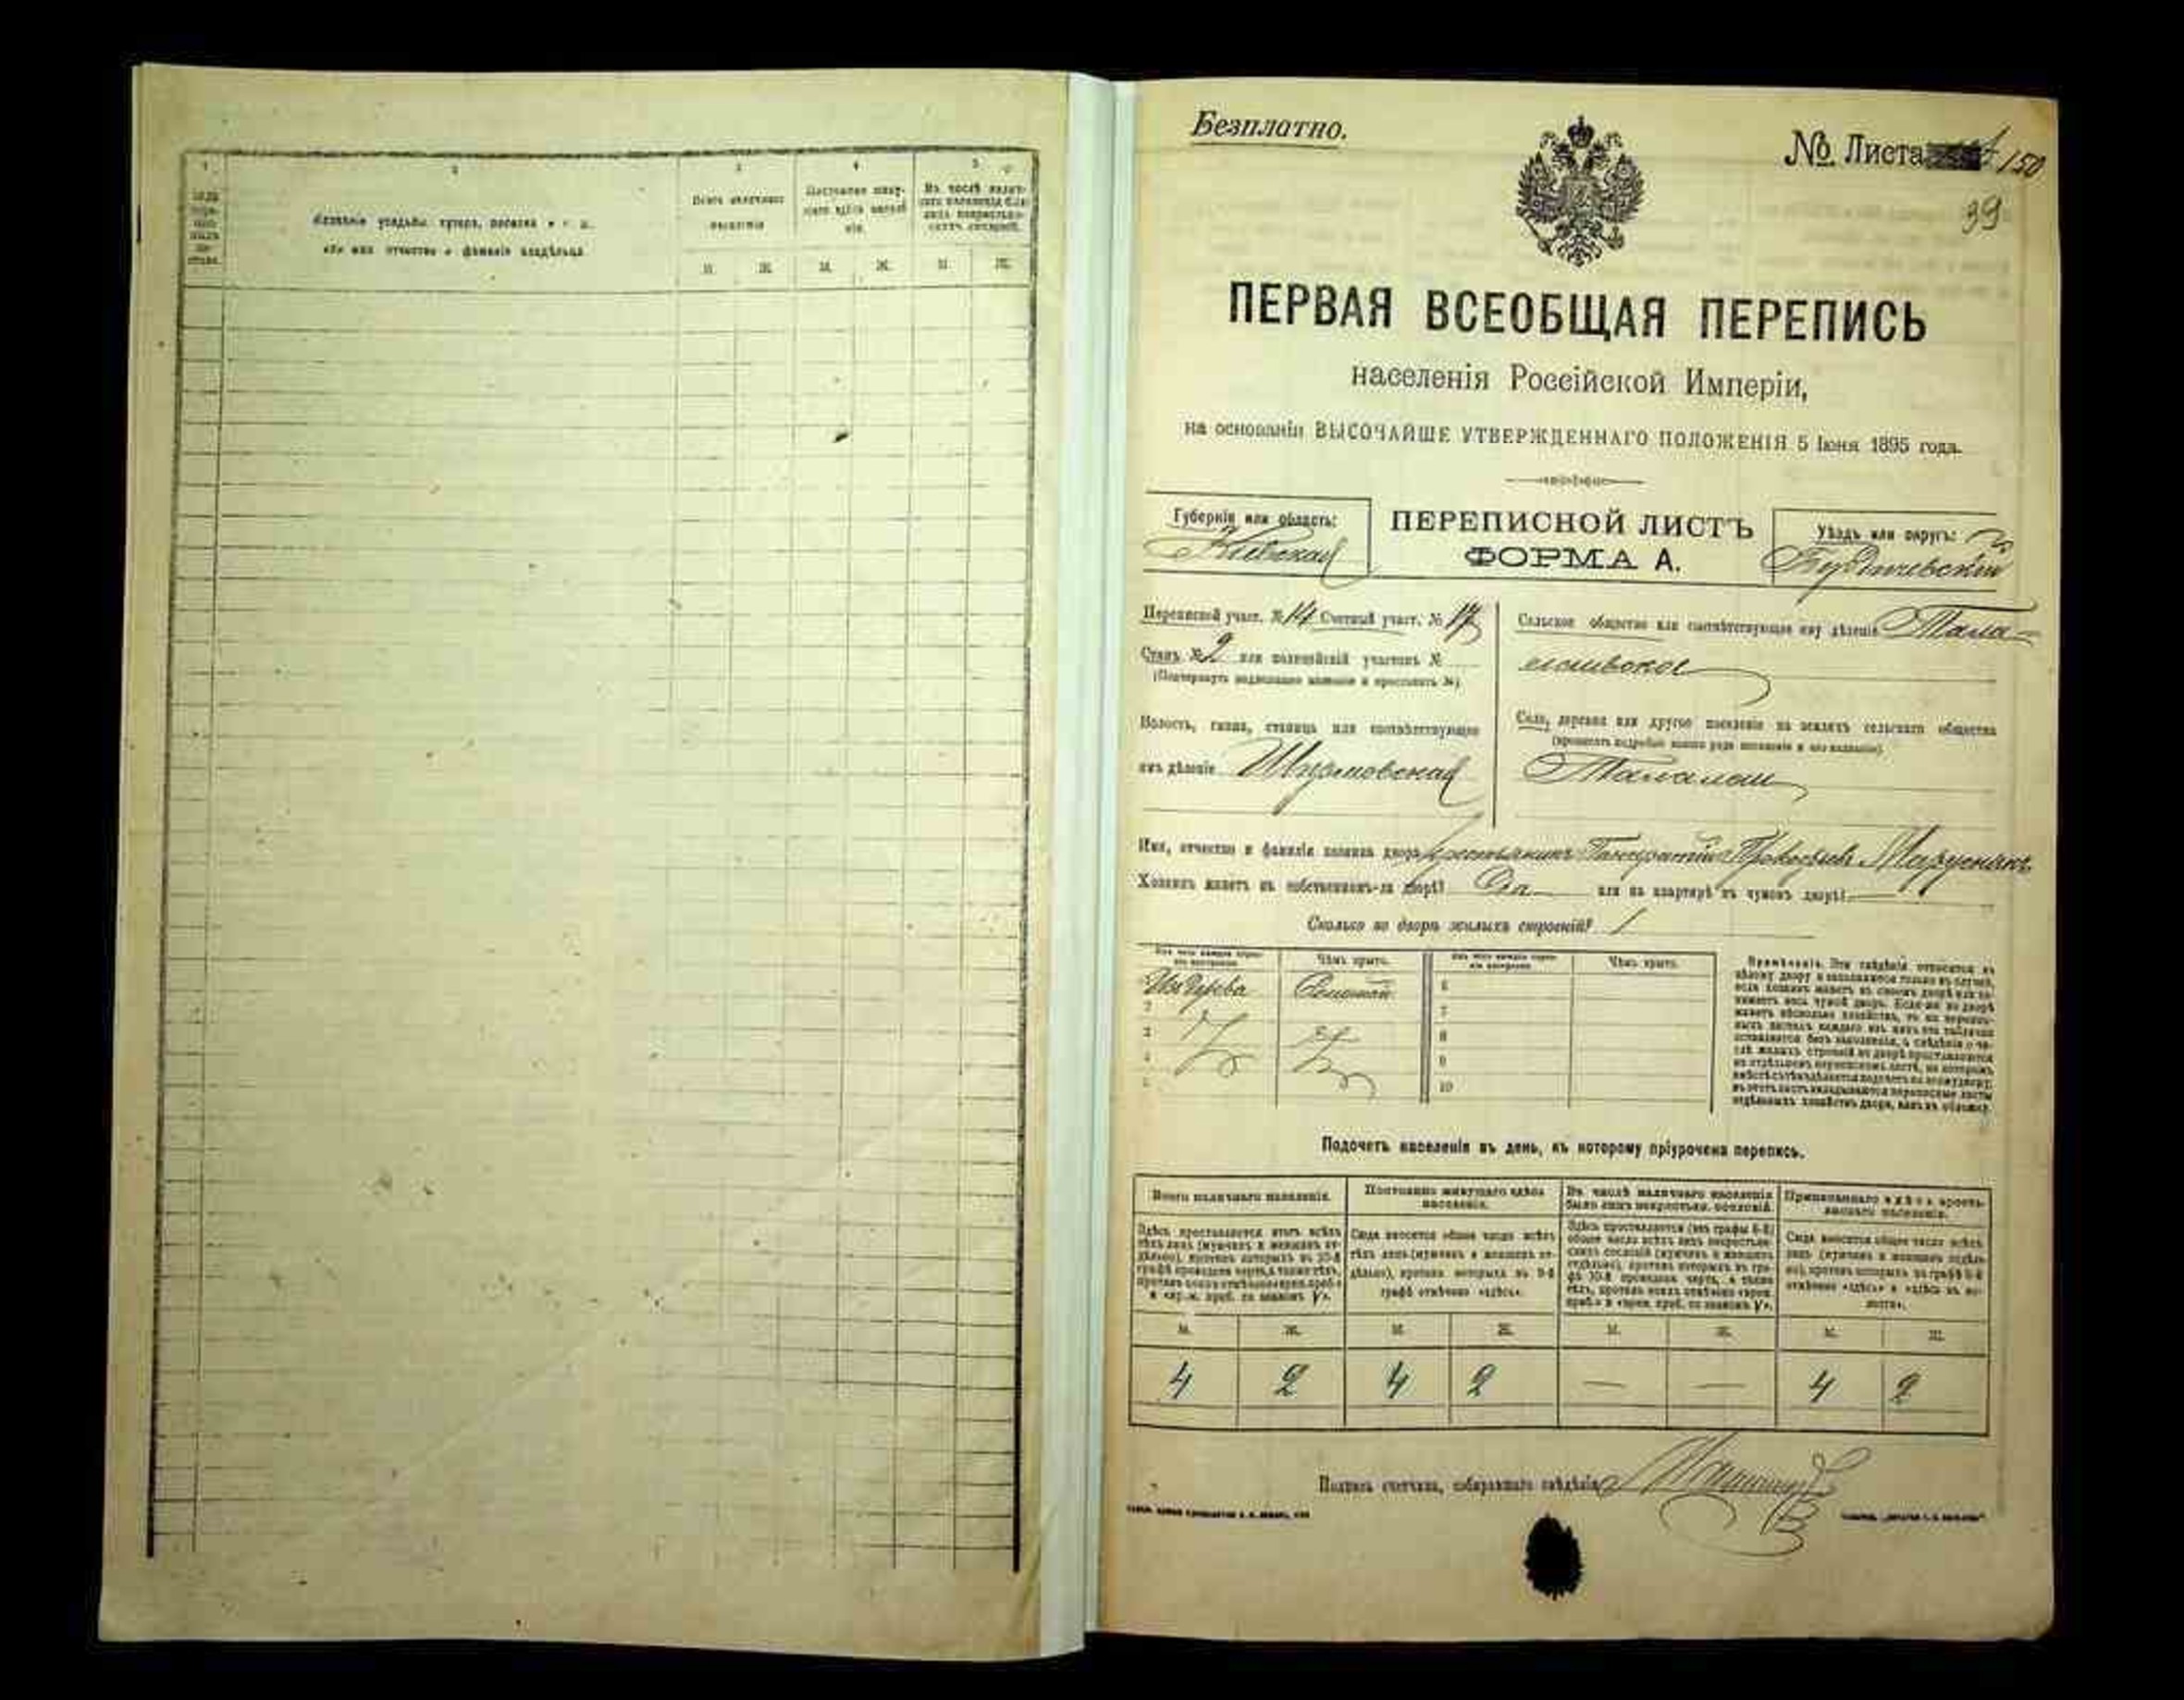 1
2
3
4
5
Названіе усадьбы, хутора, поселка и т. п.
имя отчество и фамилія владѣльца
Всего наличнаго населенія
Постоянно живу-
щаго здѣсь населе-
нія.
Въ числѣ налич-
наго населенія бы-
ло лицъ некрестьян-
скихъ сословій.
М. Ж. М. Ж. М. Ж.
Безплатно.
№ Листа 150
39
ПЕРВАЯ ВСЕОБЩАЯ ПЕРЕПИСЬ
населенія Россійской Имперіи,
на основаніи ВЫСОЧАЙШЕ УТВЕРЖДЕННАГО ПОЛОЖЕНІЯ 5 Іюня 1895 года.
Губернія или область:
Кіевская
ПЕРЕПИСНОЙ ЛИСТЪ
ФОРМА А.
Уѣздъ или округъ:
Бердичевскій
Переписной участ. № 14 Счетный участ. № 17
Станъ № 2 или полицейскій участокъ №
(Подчеркнуть надлежащее названіе и проставить №).
Волость, гмина, станица или соотвѣтствующее
имъ дѣленіе
Сельское общество или соотвѣтствующее ему дѣленіе Тала-
Село, деревня или другое поселеніе на земляхъ сельскаго общества
(прописать подробно какого рода поселеніе и его названіе).
Талалаи
Имя, отчество и фамилія хозяина двора крестьянинъ Панкратій Прокофьевъ
Хозяинъ живетъ въ собственномъ-ли дворѣ? Да или на квартирѣ въ чужомъ дворѣ?
Сколько во дворѣ жилыхъ строеній? 1
Изъ чего каждое строе-
ніе построено.
Чѣмъ крыто.
Изъ чего каждое строе-
ніе построено.
Чѣмъ крыто.
Изъ дерева Соломой 6
2 7
3 8
4 9
5 10
Примѣчаніе. Эти свѣдѣнія относятся къ
цѣлому двору и заполняются только въ случаѣ,
если хозяинъ живетъ въ своемъ дворѣ или за-
нимаетъ весь чужой дворъ. Если-же во дворѣ
живетъ нѣсколько хозяйствъ, то на перепис-
ныхъ листахъ каждаго изъ нихъ эта табличка
оставляется безъ заполненія, а свѣдѣнія о чи-
слѣ жилыхъ строеній во дворѣ проставляются
на отдѣльномъ переписномъ листѣ, на которомъ
вмѣстѣ съ тѣмъ дѣлается подсчетъ по всему двору;
въ этотъ листъ вкладываются переписные листы
отдѣльныхъ хозяйствъ двора, какъ въ обложку.
Подсчетъ населенія въ день, къ которому пріурочена перепись.
Всего наличнаго населенія.
Здѣсь проставляется итогъ всѣхъ
тѣхъ лицъ (мужчинъ и женщинъ от-
дѣльно), противъ которыхъ въ 10-й
графѣ проведена черта, а также тѣхъ,
Постоянно живущаго здѣсь
населенія.
Сюда вносится общее число всѣхъ
тѣхъ лицъ (мужчинъ и женщинъ от-
дѣльно), противъ которыхъ въ 9-й
графѣ отмѣчено «здѣсь».
Въ числѣ наличнаго населенія
было лицъ некрестьян. сословій.
Здѣсь проставляется (изъ графы 6-й)
общее число всѣхъ лицъ некрестьян-
скихъ сословій (мужчинъ и женщинъ
отдѣльно), противъ которыхъ въ гра-
фѣ 10-й проведена черта, а также
Приписаннаго здѣсь кресть-
янскаго населенія.
Сюда вносится общее число всѣхъ
лицъ (мужчинъ и женщинъ отдѣль-
но), противъ которыхъ въ графѣ 8-й
отмѣчено «здѣсь» и «здѣсь въ во-
лости».
М. Ж. М. Ж. М. Ж. М. Ж.
4 2 4 2 — — 4 2
Подпись счетчика, собиравшаго свѣдѣнія